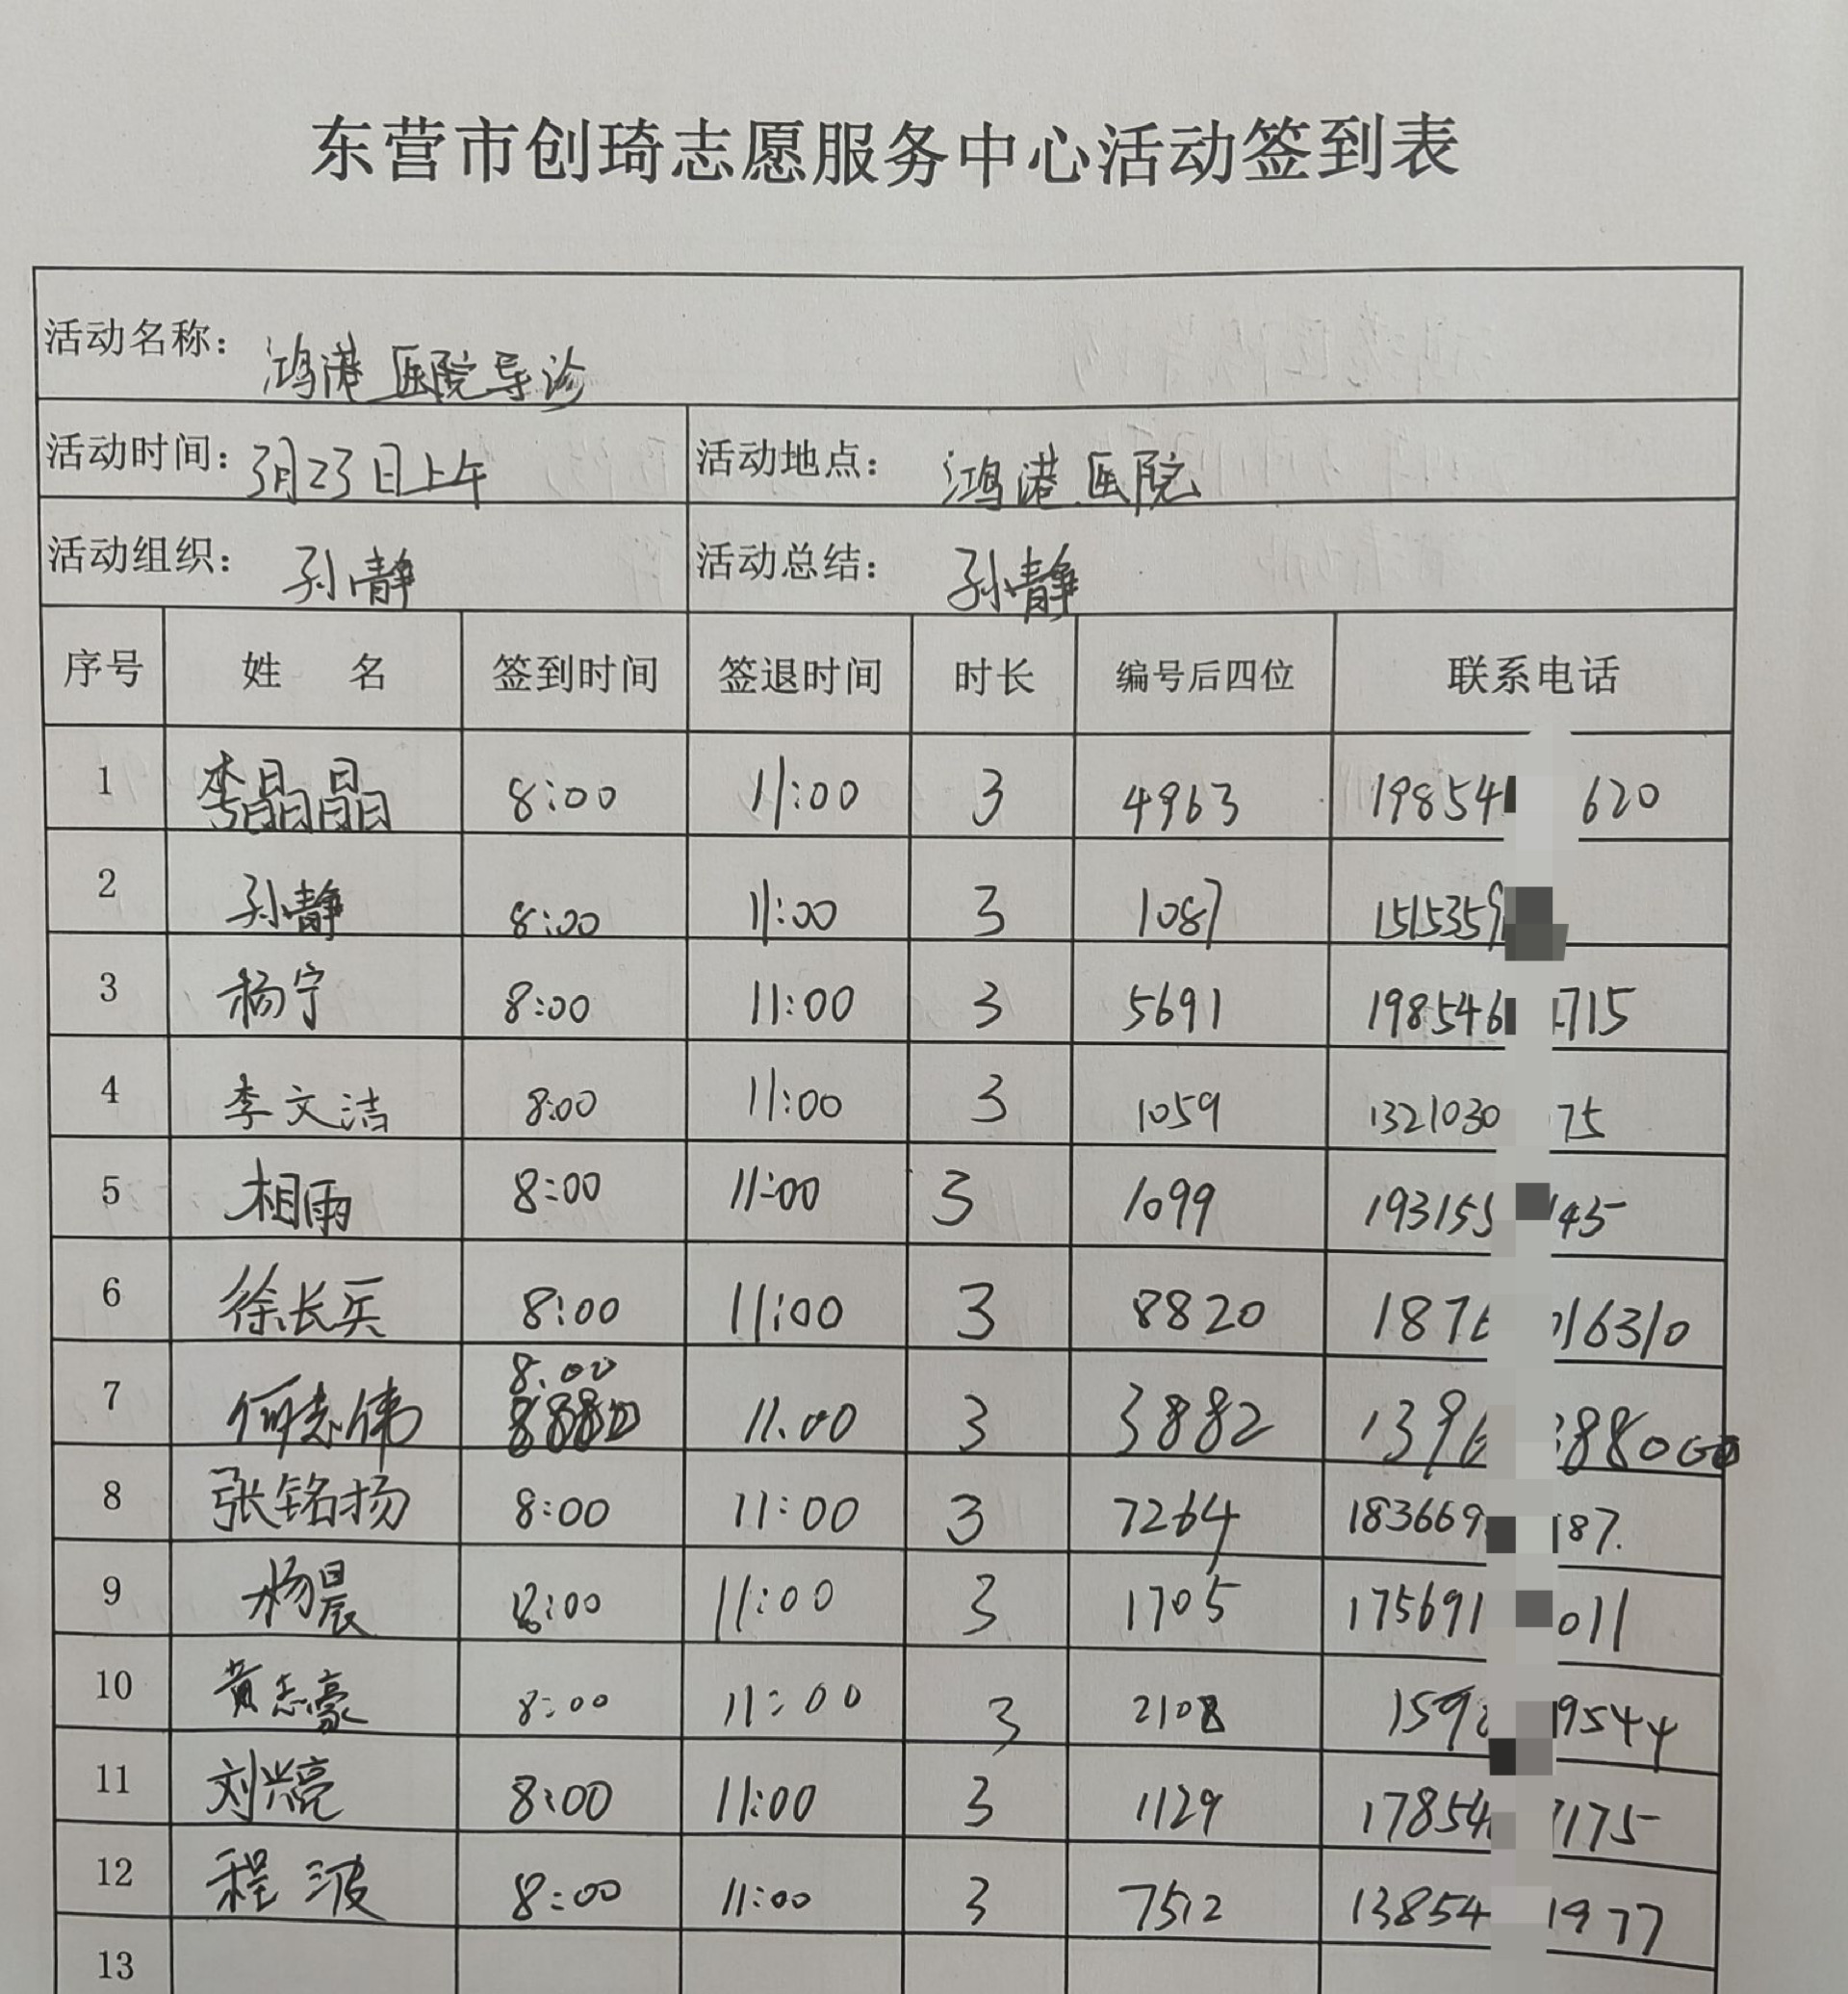 东营市创琦志愿服务中心活动签到表
活动名称: 鸿港医院导诊
活动时间: 3月23日上午 活动地点: 鸿港医院
活动组织: 孙静 活动总结: 孙静
序号 姓 名 签到时间 签退时间 时长 编号后四位 联系电话
1 李晶晶 8:00 11:00 3 4963 19854 620
2 孙静 8:00 11:00 3 1087 1515359
3 杨宁 8:00 11:00 3 5691 198546 715
4 李文洁 8:00 11:00 3 1059 1321030 75
5 相雨 8:00 11:00 3 1099 193155 145
6 徐长兵 8:00 11:00 3 8820 1876 16310
7 何志伟 8:00 11:00 3 3882 1396 8800
8 张铭扬 8:00 11:00 3 7264 183669 87.
9 杨晨 8:00 11:00 3 1705 175691 011
10 黄志豪 8:00 11:00 3 2108 159 9544
11 刘兴亮 8:00 11:00 3 1129 17854 175
12 程波 8:00 11:00 3 7512 13854 1977
13